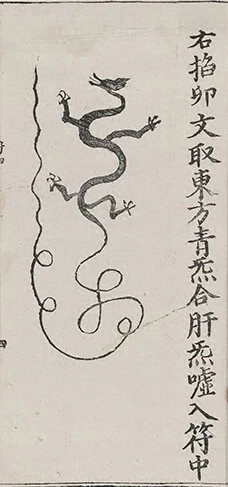 右掐卯文取東方青炁合肝炁噓入符中
四